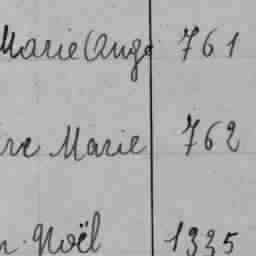 Marie Ange 761
re Marie 762
n. Noël 1335